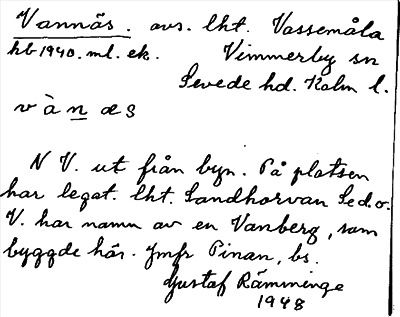 Vannäs. avs. lht. Vassemåla
hb 1940. ml. ek. Vimmerby sn
Sevede hd. Kalm l.
v à n æ s
N V. ut från byn. På platsen
har legat. lht. Sandhorvan Se d. o.
V. har namn av en Vanberg, som
byggde här. Jmfr Pinan, bs.
Gustaf Rämminge
1948